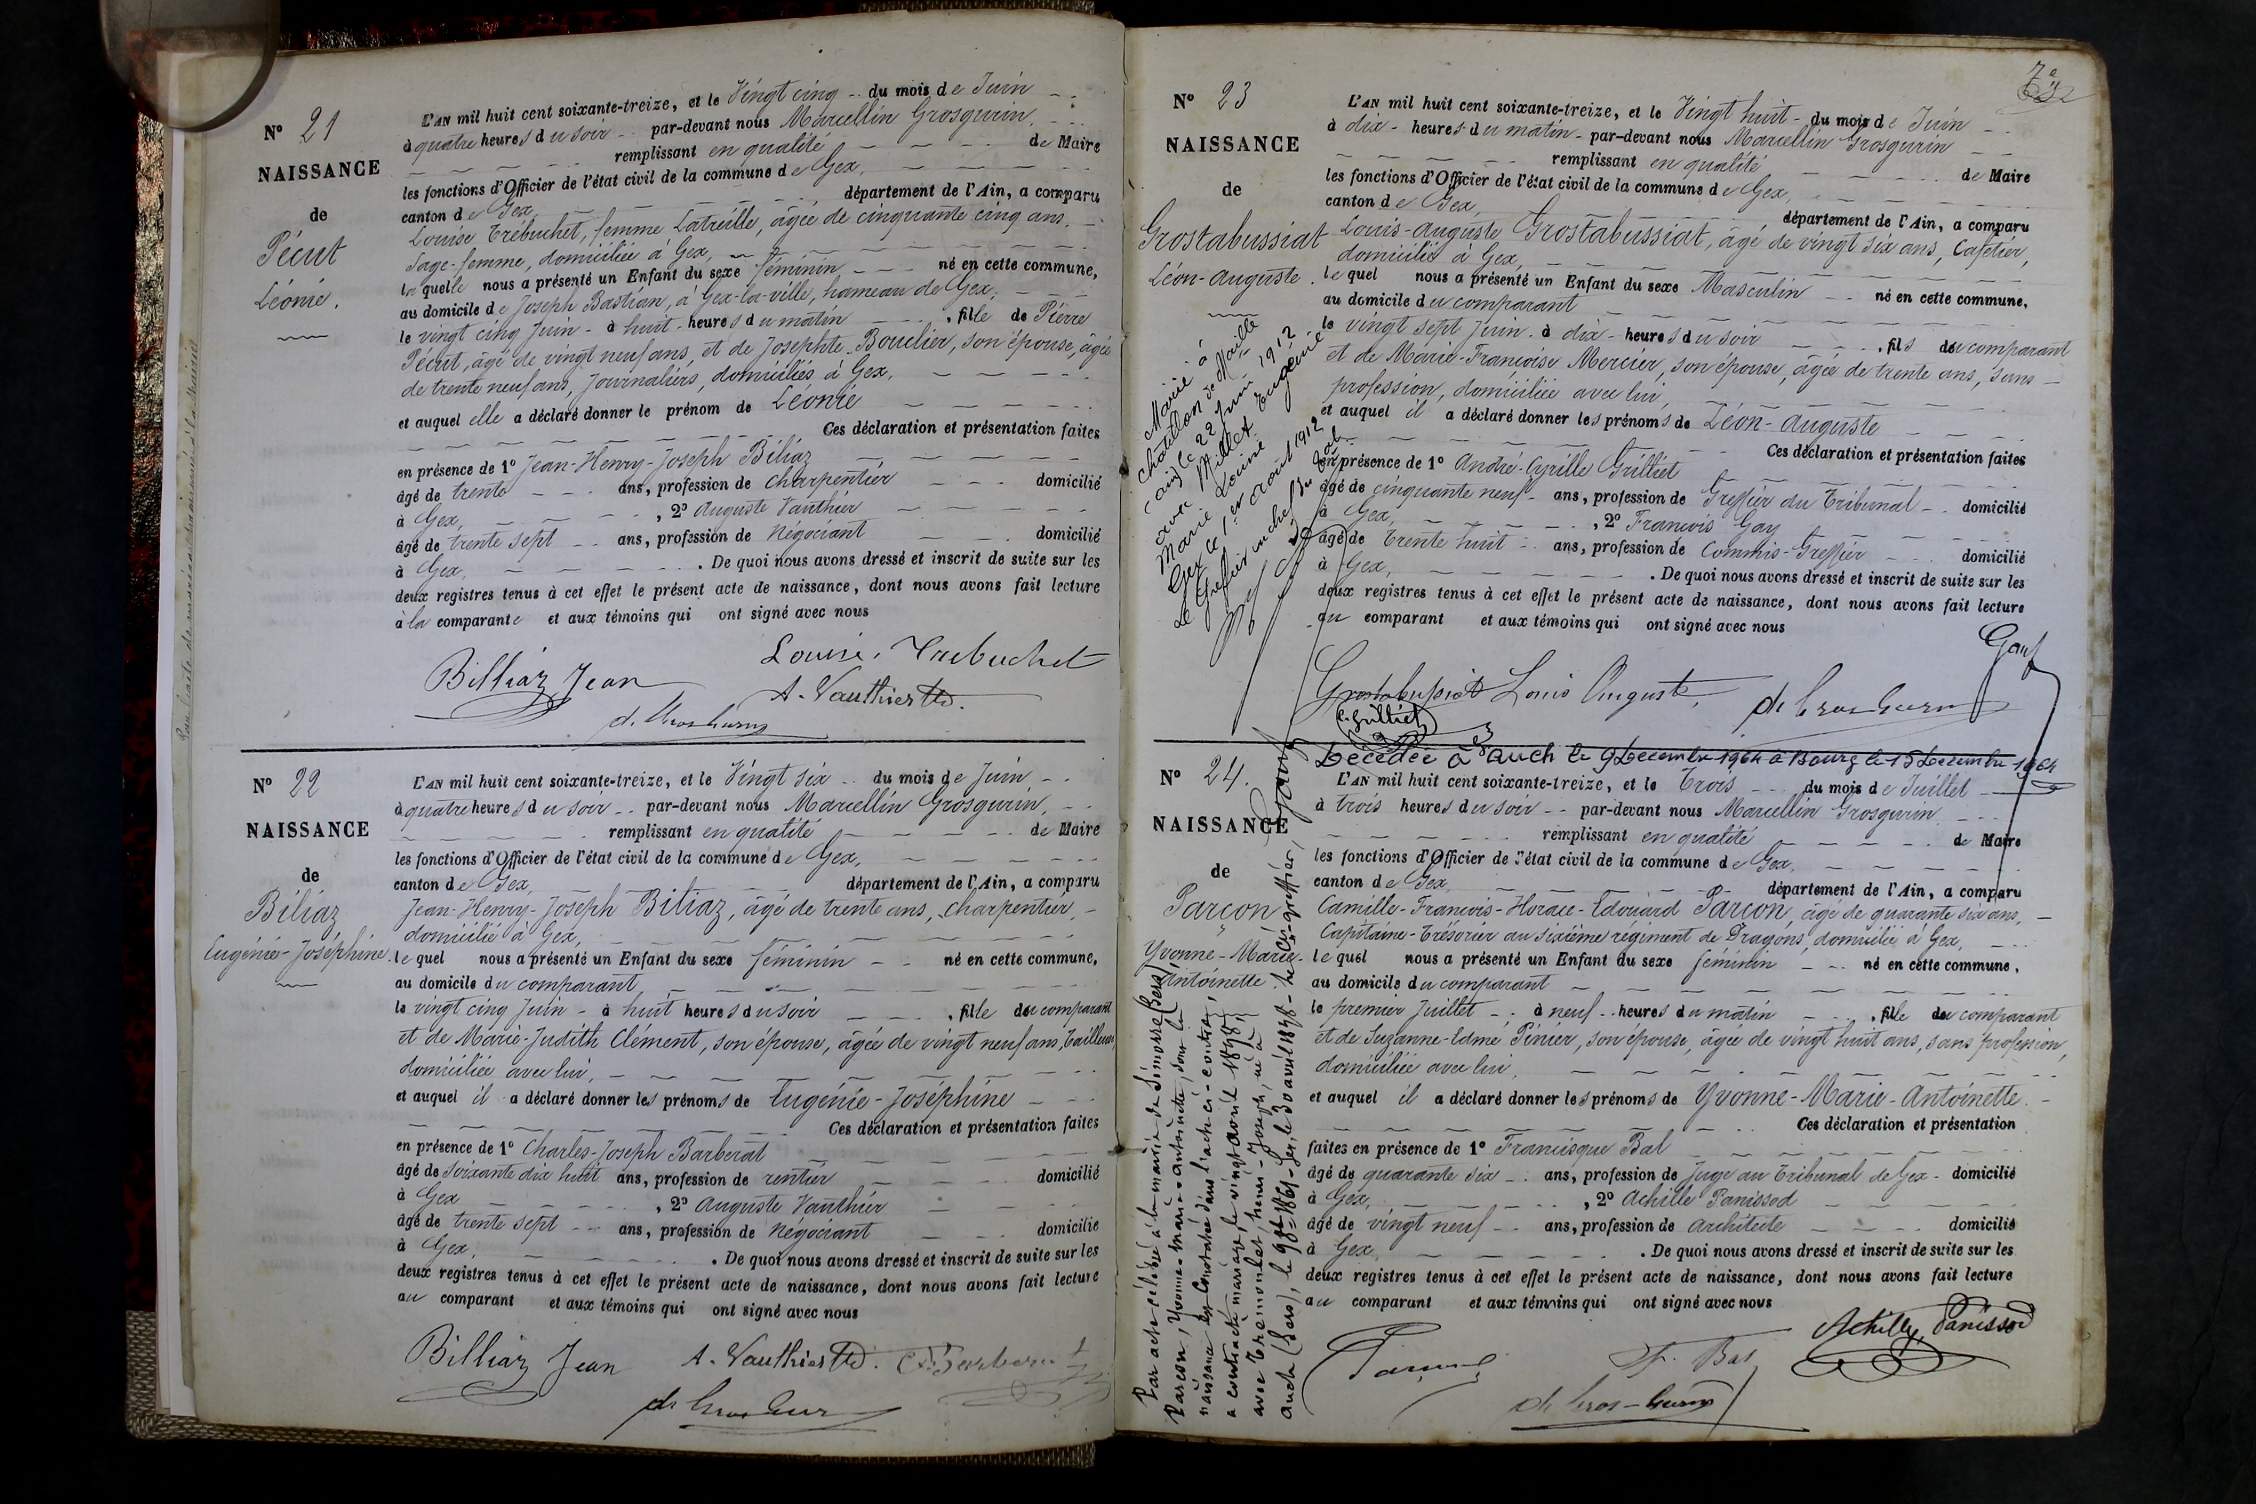 N° 21
NAISSANCE
de
Pécut
Léonie.
L'AN mil huit cent soixante-treize, et le Vingt cinq du mois de Juin
à quatre heures du soir par-devant nous Marcellin Grosgurin
remplissant en qualité de Maire
les fonctions d'Officier de l'état civil de la commune de Gex,
canton de Gex, département de l'Ain, a comparu
Louise Trébuchet, femme Latreille, âgée de cinquante cinq ans,
Sage-femme, domiciliée à Gex,
laquelle nous a présenté un Enfant du sexe féminin né en cette commune,
au domicile de Joseph Bastian, à Gex-la-ville, hameau de Gex,
le vingt cinq Juin à huit heures du matin, fille de Pierre
Pécut, âgé de vingt neuf ans, et de Josephte Bouclier, son épouse, âgée
de trente neuf ans, Journaliers, domiciliés à Gex,
et auquel elle a déclaré donner le prénom de Léonie
Ces déclaration et présentation faites
en présence de 1° Jean-Henry-Joseph Biliaz
âgé de trente ans, profession de Charpentier domicilié
à Gex, , 2° Auguste Vauthier
âgé de trente sept ans, profession de Négociant domicilié
à Gex. . De quoi nous avons dressé et inscrit de suite sur les
deux registres tenus à cet effet le présent acte de naissance, dont nous avons fait lecture
à la comparante et aux témoins qui ont signé avec nous
Louise Trebuchet
Billiaz Jean
A. Vauthier
N° 22
NAISSANCE
de
Biliaz
Eugénie-Joséphine.
L'AN mil huit cent soixante-treize, et le Vingt six du mois de Juin
à quatre heures du soir par-devant nous Marcellin Grosgurin,
remplissant en qualité de Maire
les fonctions d'Officier de l'état civil de la commune de Gex,
canton de Gex, département de l'Ain, a comparu
Jean-Henry-Joseph Biliaz, âgé de trente ans, Charpentier,
domicilié à Gex,
lequel nous a présenté un Enfant du sexe féminin né en cette commune,
au domicile du comparant,
le vingt cinq Juin à huit heures du soir, fille du comparant
et de Marie-Judith Clément, son épouse, âgée de vingt neuf ans, Tailleuse
domiciliée avec lui,
et auquel il a déclaré donner les prénoms de Eugénie-Joséphine
Ces déclaration et présentation faites
en présence de 1° Charles-Joseph Barberat
âgé de soixante dix huit ans, profession de rentier domicilié
à Gex , 2° Auguste Vauthier
âgé de trente sept ans, profession de Négociant domicilié
à Gex. . De quoi nous avons dressé et inscrit de suite sur les
deux registres tenus à cet effet le présent acte de naissance, dont nous avons fait lecture
au comparant et aux témoins qui ont signé avec nous
Billiaz Jean A. Vauthier
N° 23
NAISSANCE
de
Grostabussiat
Léon-Auguste.
Marié à
Châtillon de Michaille
avec Millet
Marie Louise Eugénie
Gex le 1er Août 1912
Le Greffier en chef du Trib.
L'AN mil huit cent soixante-treize, et le Vingt huit du mois de Juin
à dix heures du matin par-devant nous Marcellin Grosgurin
remplissant en qualité de Maire
les fonctions d'Officier de l'état civil de la commune de Gex,
canton de Gex, département de l'Ain, a comparu
Louis-Auguste Grostabussiat, âgé de vingt six ans, Cafetier,
domicilié à Gex,
lequel nous a présenté un Enfant du sexe Masculin né en cette commune,
au domicile du comparant
le vingt sept Juin à dix heures du soir, fils du comparant
et de Marie-Françoise Mercier, son épouse, âgée de trente ans, sans
profession, domiciliée avec lui,
et auquel il a déclaré donner les prénoms de Léon-Auguste
Ces déclaration et présentation faites
en présence de 1° André-Cyrille Grilliet
âgé de cinquante neuf ans, profession de Greffier du Tribunal domicilié
à Gex, , 2° François Gay
âgé de trente huit ans, profession de Commis-Greffier domicilié
à Gex, . De quoi nous avons dressé et inscrit de suite sur les
deux registres tenus à cet effet le présent acte de naissance, dont nous avons fait lecture
au comparant et aux témoins qui ont signé avec nous
Gay
Grostabussiat Louis Auguste
C. Grilliet
Décédée à Auch le 9 Decembre 1964 à Bourg le 15 Decembre 1964
N° 24.
NAISSANCE
de
Parcon
Yvonne-Marie-
Antoinette
Par acte célébré à la mairie de Simorre (Gers)
Parcon, Yvonne-Marie-Antoinette, dont la
naissance est constatée dans l'acte ci-contre,
a contracté mariage, le vingt avril 1898,
avec Tremoulet, Henri-Joseph, né à
Auch (Gers), le 9 1861 - Gex, le 30 avril 1898 - Le greffier,
L'AN mil huit cent soixante-treize, et le Trois du mois de Juillet
à trois heures du soir par-devant nous Marcellin Grosgurin
remplissant en qualité de Maire
les fonctions d'Officier de l'état civil de la commune de Gex,
canton de Gex, département de l'Ain, a comparu
Camille-François-Horace-Edouard Parcon, âgé de quarante six ans,
Capitaine-Trésorier au sixième régiment de Dragons, domicilié à Gex,
lequel nous a présenté un Enfant du sexe féminin né en cette commune,
au domicile du comparant
le premier Juillet à neuf heures du matin, fille du comparant
et de Suzanne-Edmé Pinier, son épouse, âgée de vingt huit ans, sans profession,
domiciliée avec lui,
et auquel il a déclaré donner les prénoms de Yvonne-Marie-Antoinette
Ces déclaration et présentation
faites en présence de 1° Francisque Bal
âgé de quarante six ans, profession de Juge au Tribunal de Gex domicilié
à Gex, , 2° Achille Panissod
âgé de vingt neuf ans, profession de Architecte domicilié
à Gex . De quoi nous avons dressé et inscrit de suite sur les
deux registres tenus à cet effet le présent acte de naissance, dont nous avons fait lecture
au comparant et aux témoins qui ont signé avec nous
Achille Panissod
F. Bal